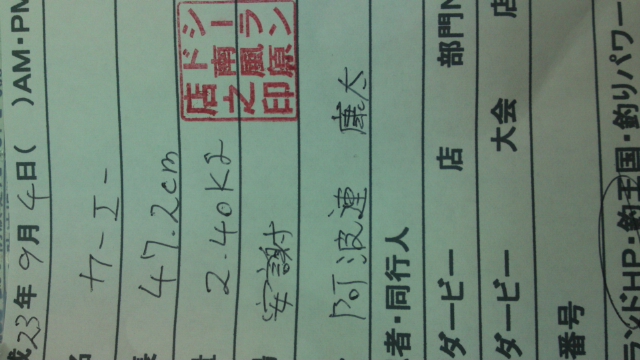 成23年9月4日( )AM・PM
名 カーエー
長 47.2cm
2.40Kg
安謝
阿波連 康大
シーランド南風原店之印
者・同行人
ダービー 店 部門
ダービー 大会 店
番号
ランドHP・釣王国・釣りパワー